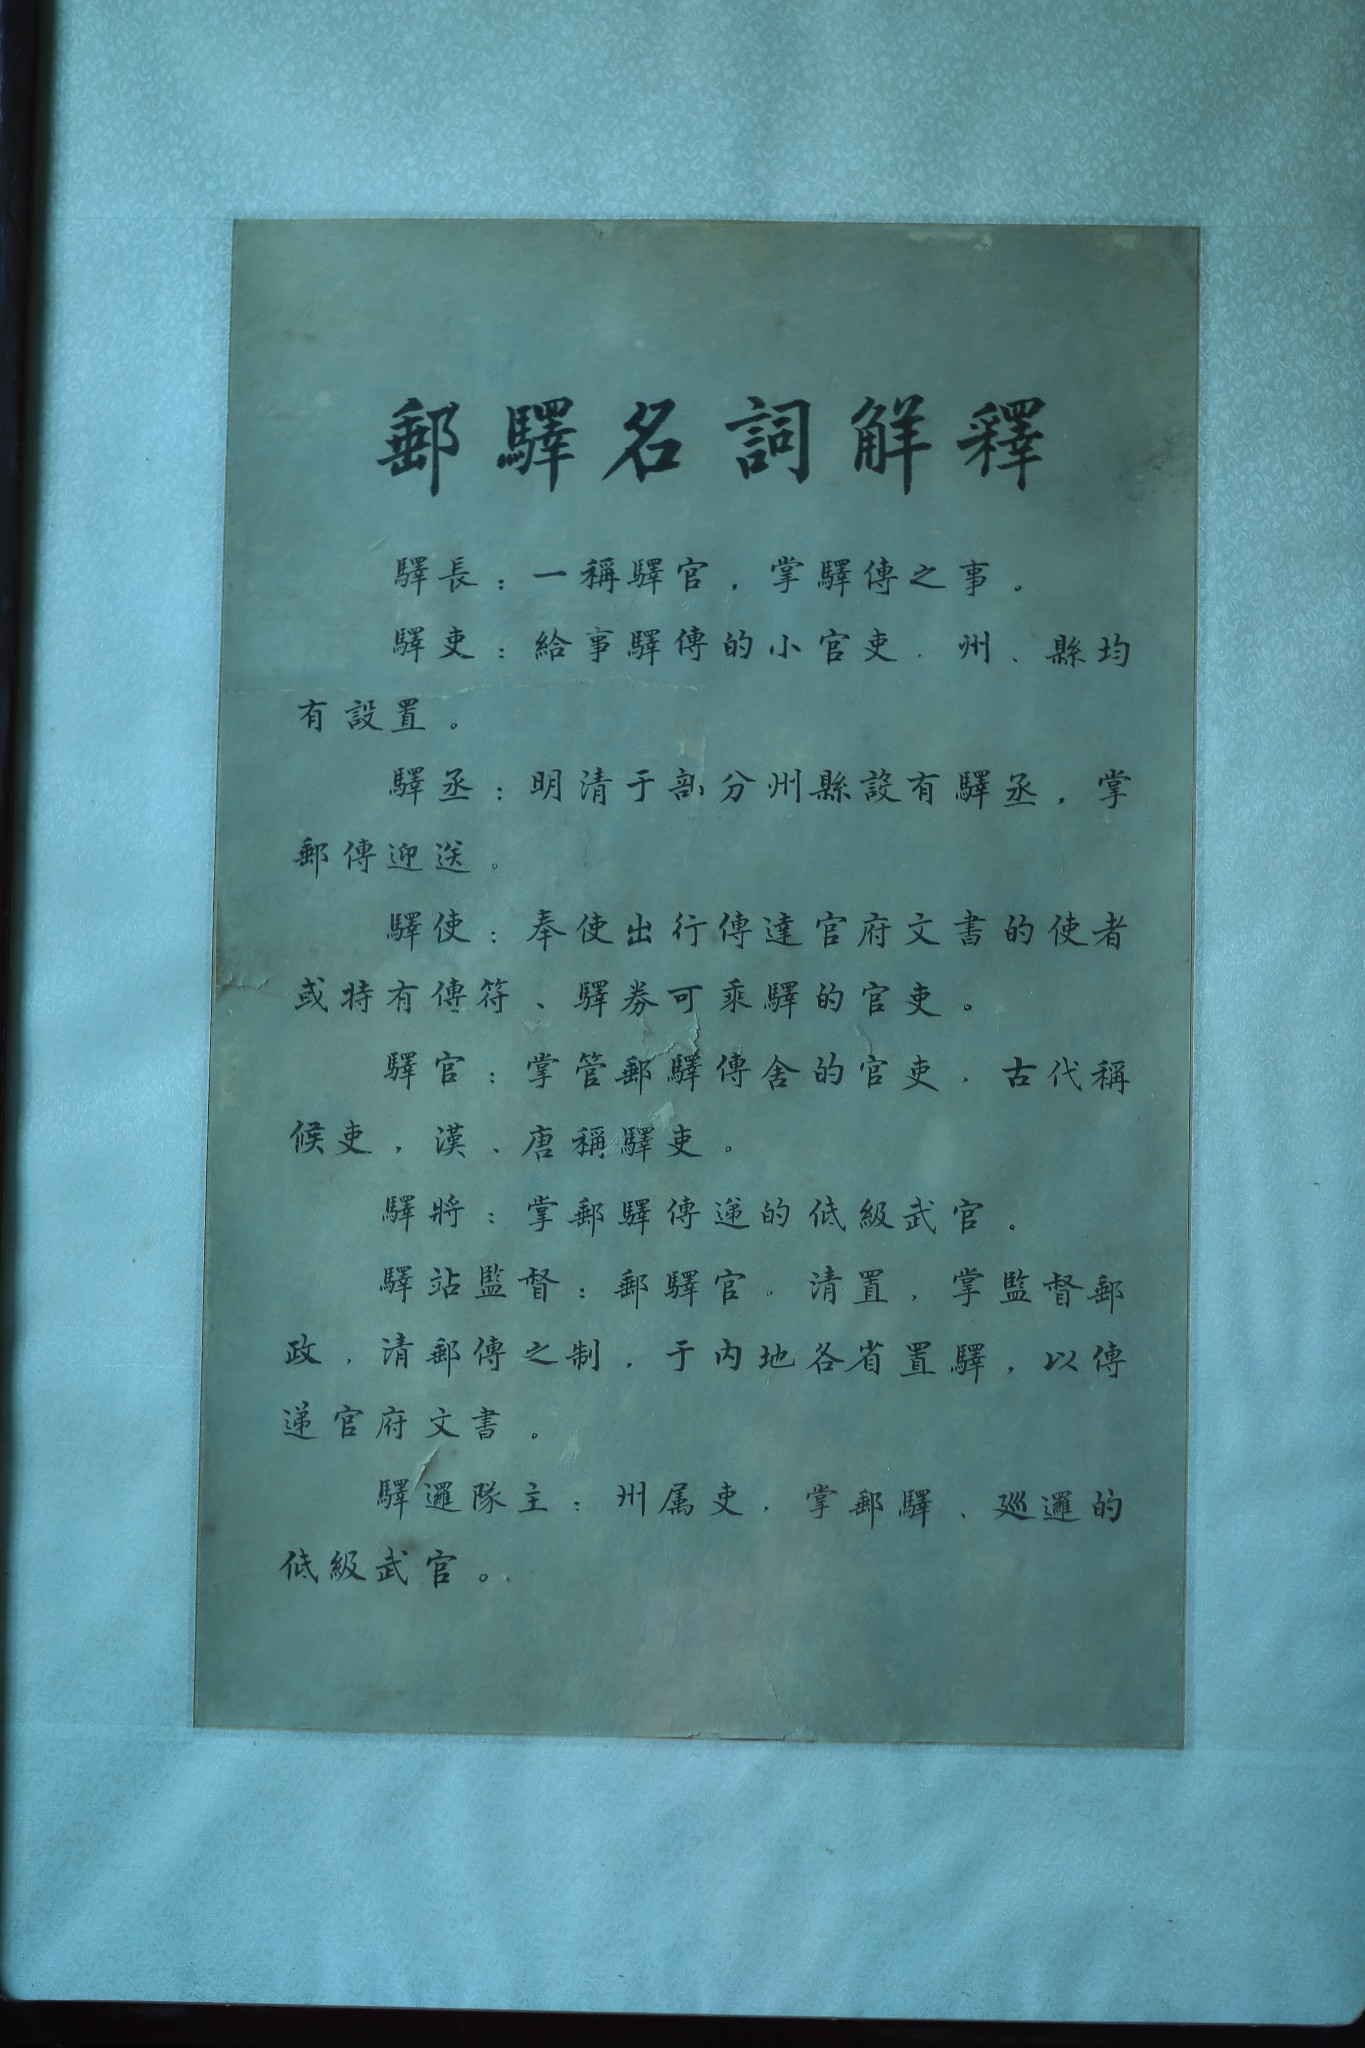 郵驛名詞解釋
驛長：一稱驛官，掌驛傳之事。
驛吏：給事驛傳的小官吏．州、縣均
有設置。
驛丞：明清于部分州縣設有驛丞，掌
郵傳迎送。
驛使：奉使出行傳達官府文書的使者
或持有傳符、驛券可乘驛的官吏。
驛官：掌管郵驛傳舍的官吏．古代稱
候吏，漢、唐稱驛吏。
驛將：掌郵驛傳递的低級武官。
驛站監督：郵驛官。清置，掌監督郵
政，清郵傳之制，于内地各省置驛，以傳
递官府文書。
驛邏隊主：州属吏，掌郵驛、巡邏的
低級武官。